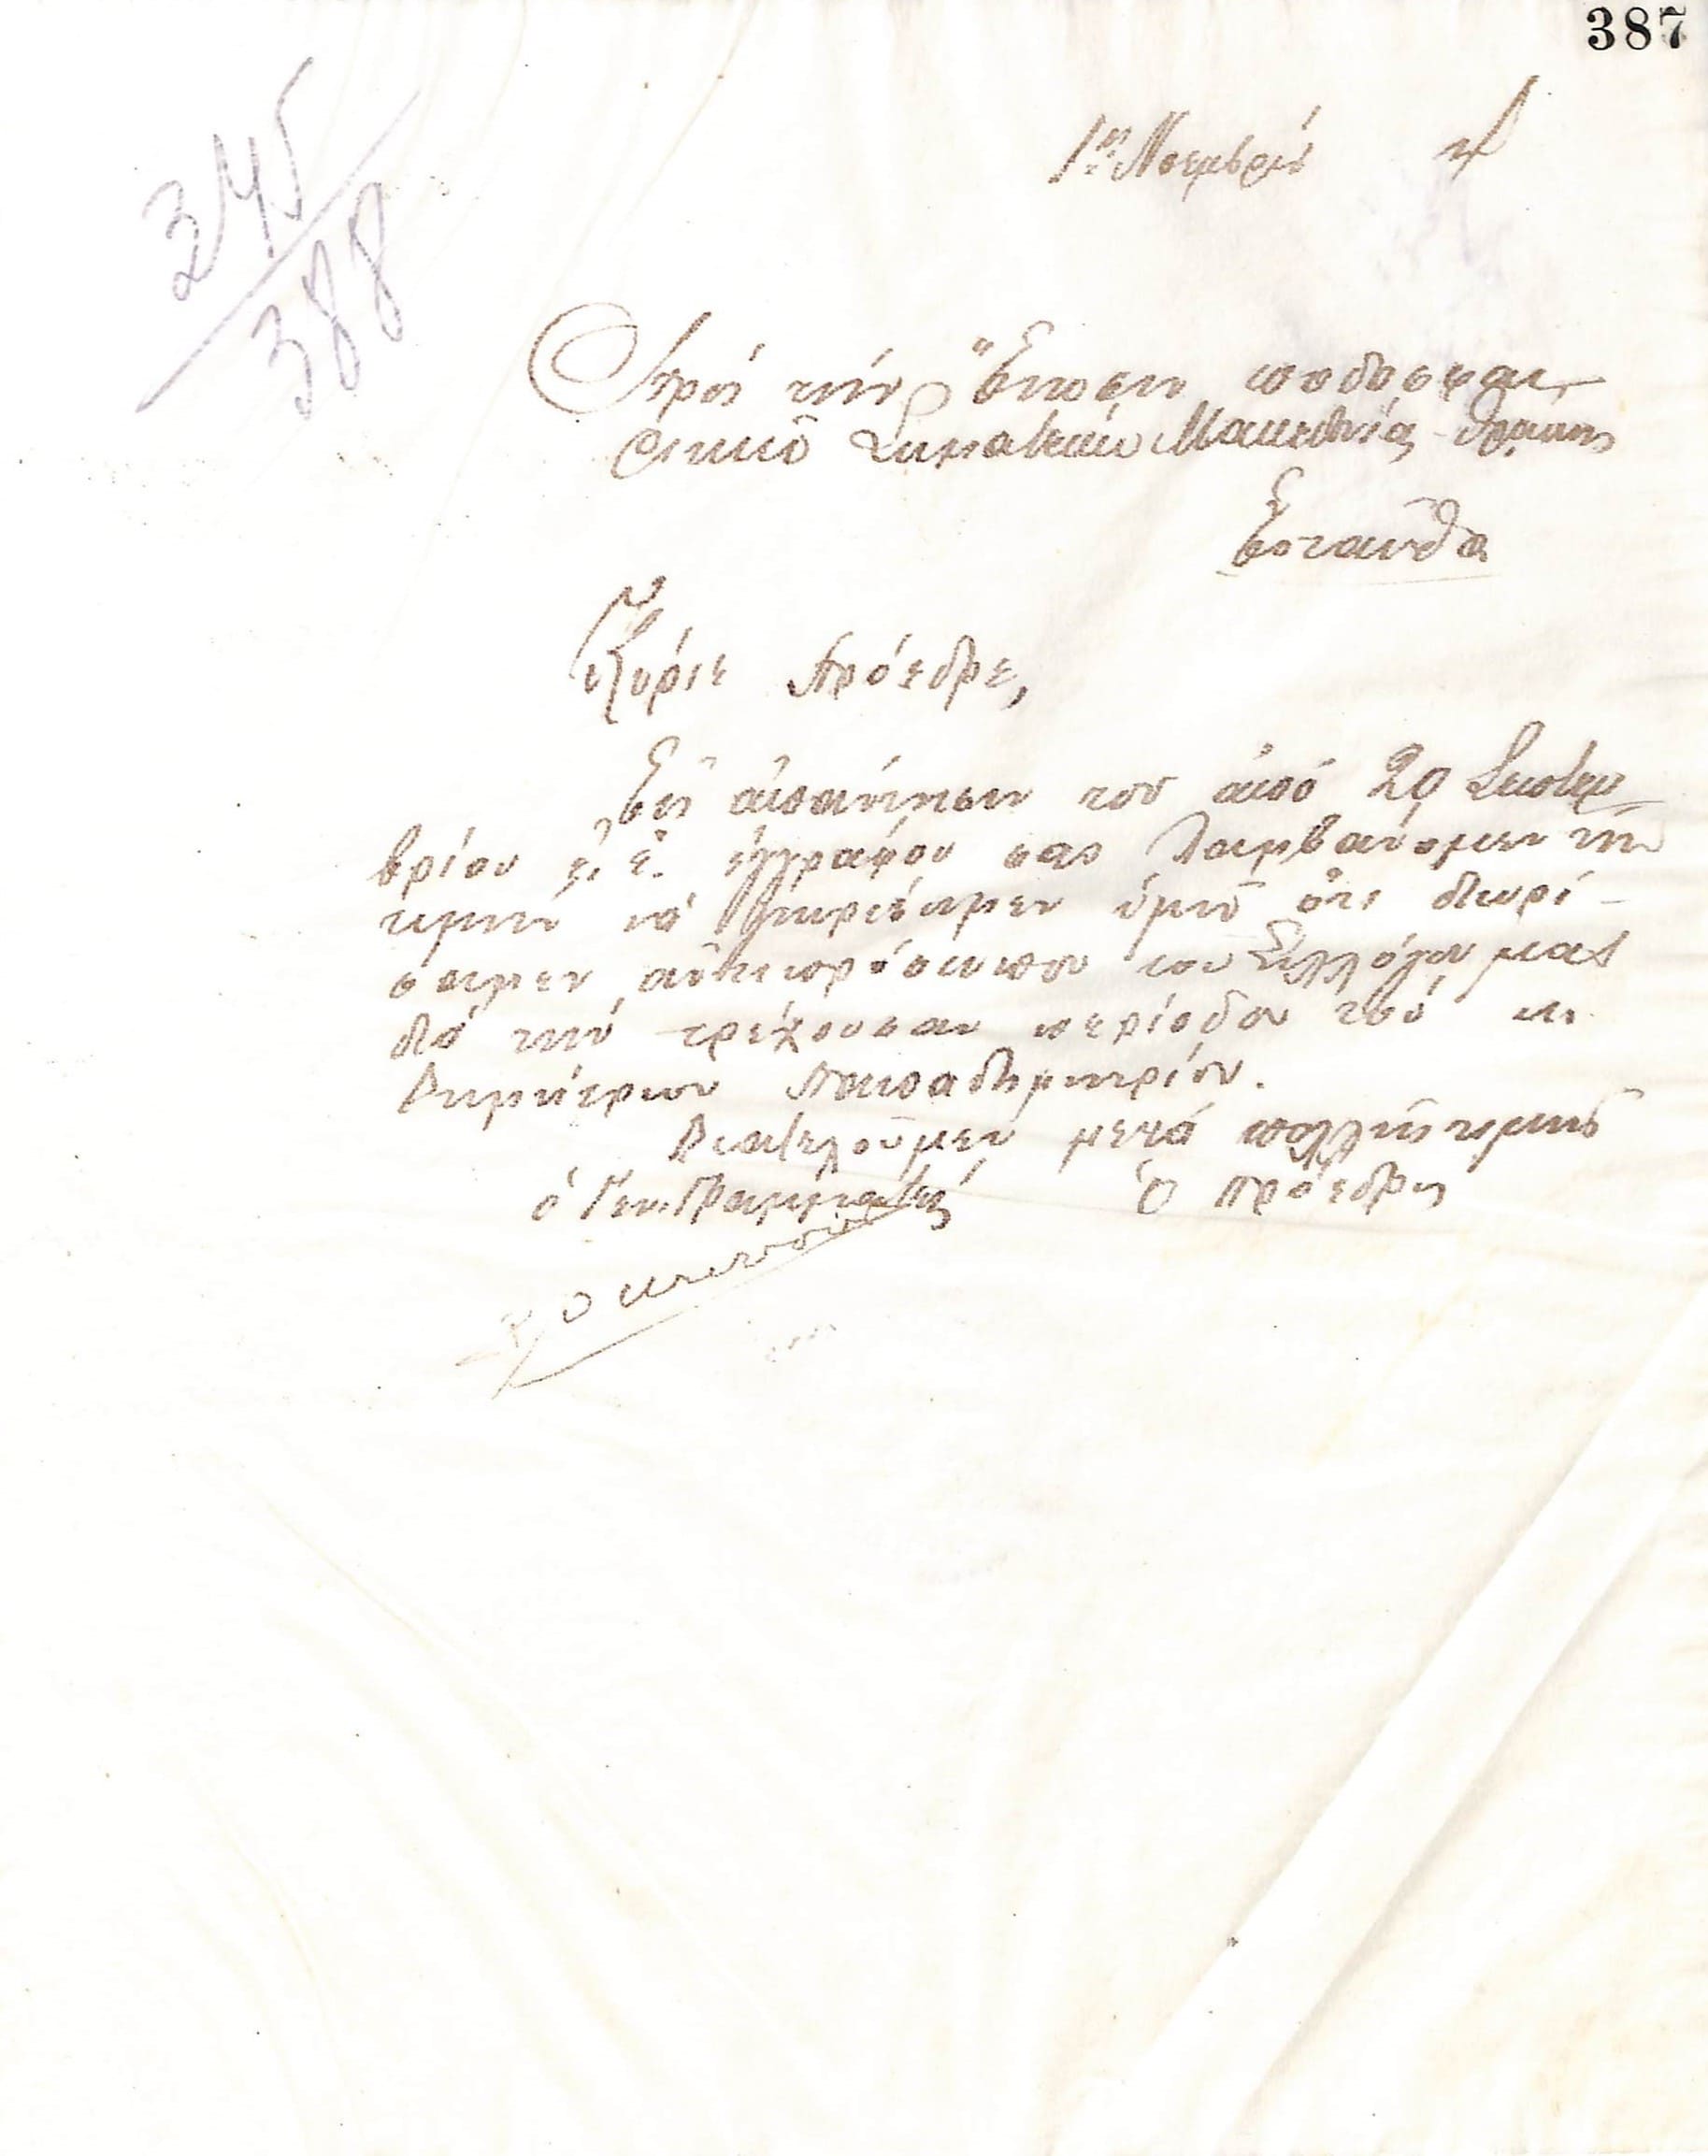 387
345
388
1ῃ Νοεμβρίου
Πρός τήν Ἕνωσιν ποδοσφαι-
ρικῶν Σωματείων Μακεδονίας-Θράκης
Ἐνταῦθα
Κύριε Πρόεδρε,
Εἰς ἀπάντησιν τοῦ ἀπό 20 Σεπτεμ-
βρίου ἐ. ἔ. ἐγγράφου σας λαμβάνομεν τήν
τιμήν νά γνωρίσωμεν ὑμῖν ὅτι διωρί-
σαμεν ἀντιπρόσωπον τοῦ Συλλόγου μας
διά τήν τρέχουσαν περίοδον τόν κ.
Δημήτριον Παπαδημητρίου.
Διατελοῦμεν μετά πολλῆς τιμῆς
ὁ Γεν. Γραμματεύς Ὁ Πρόεδρος